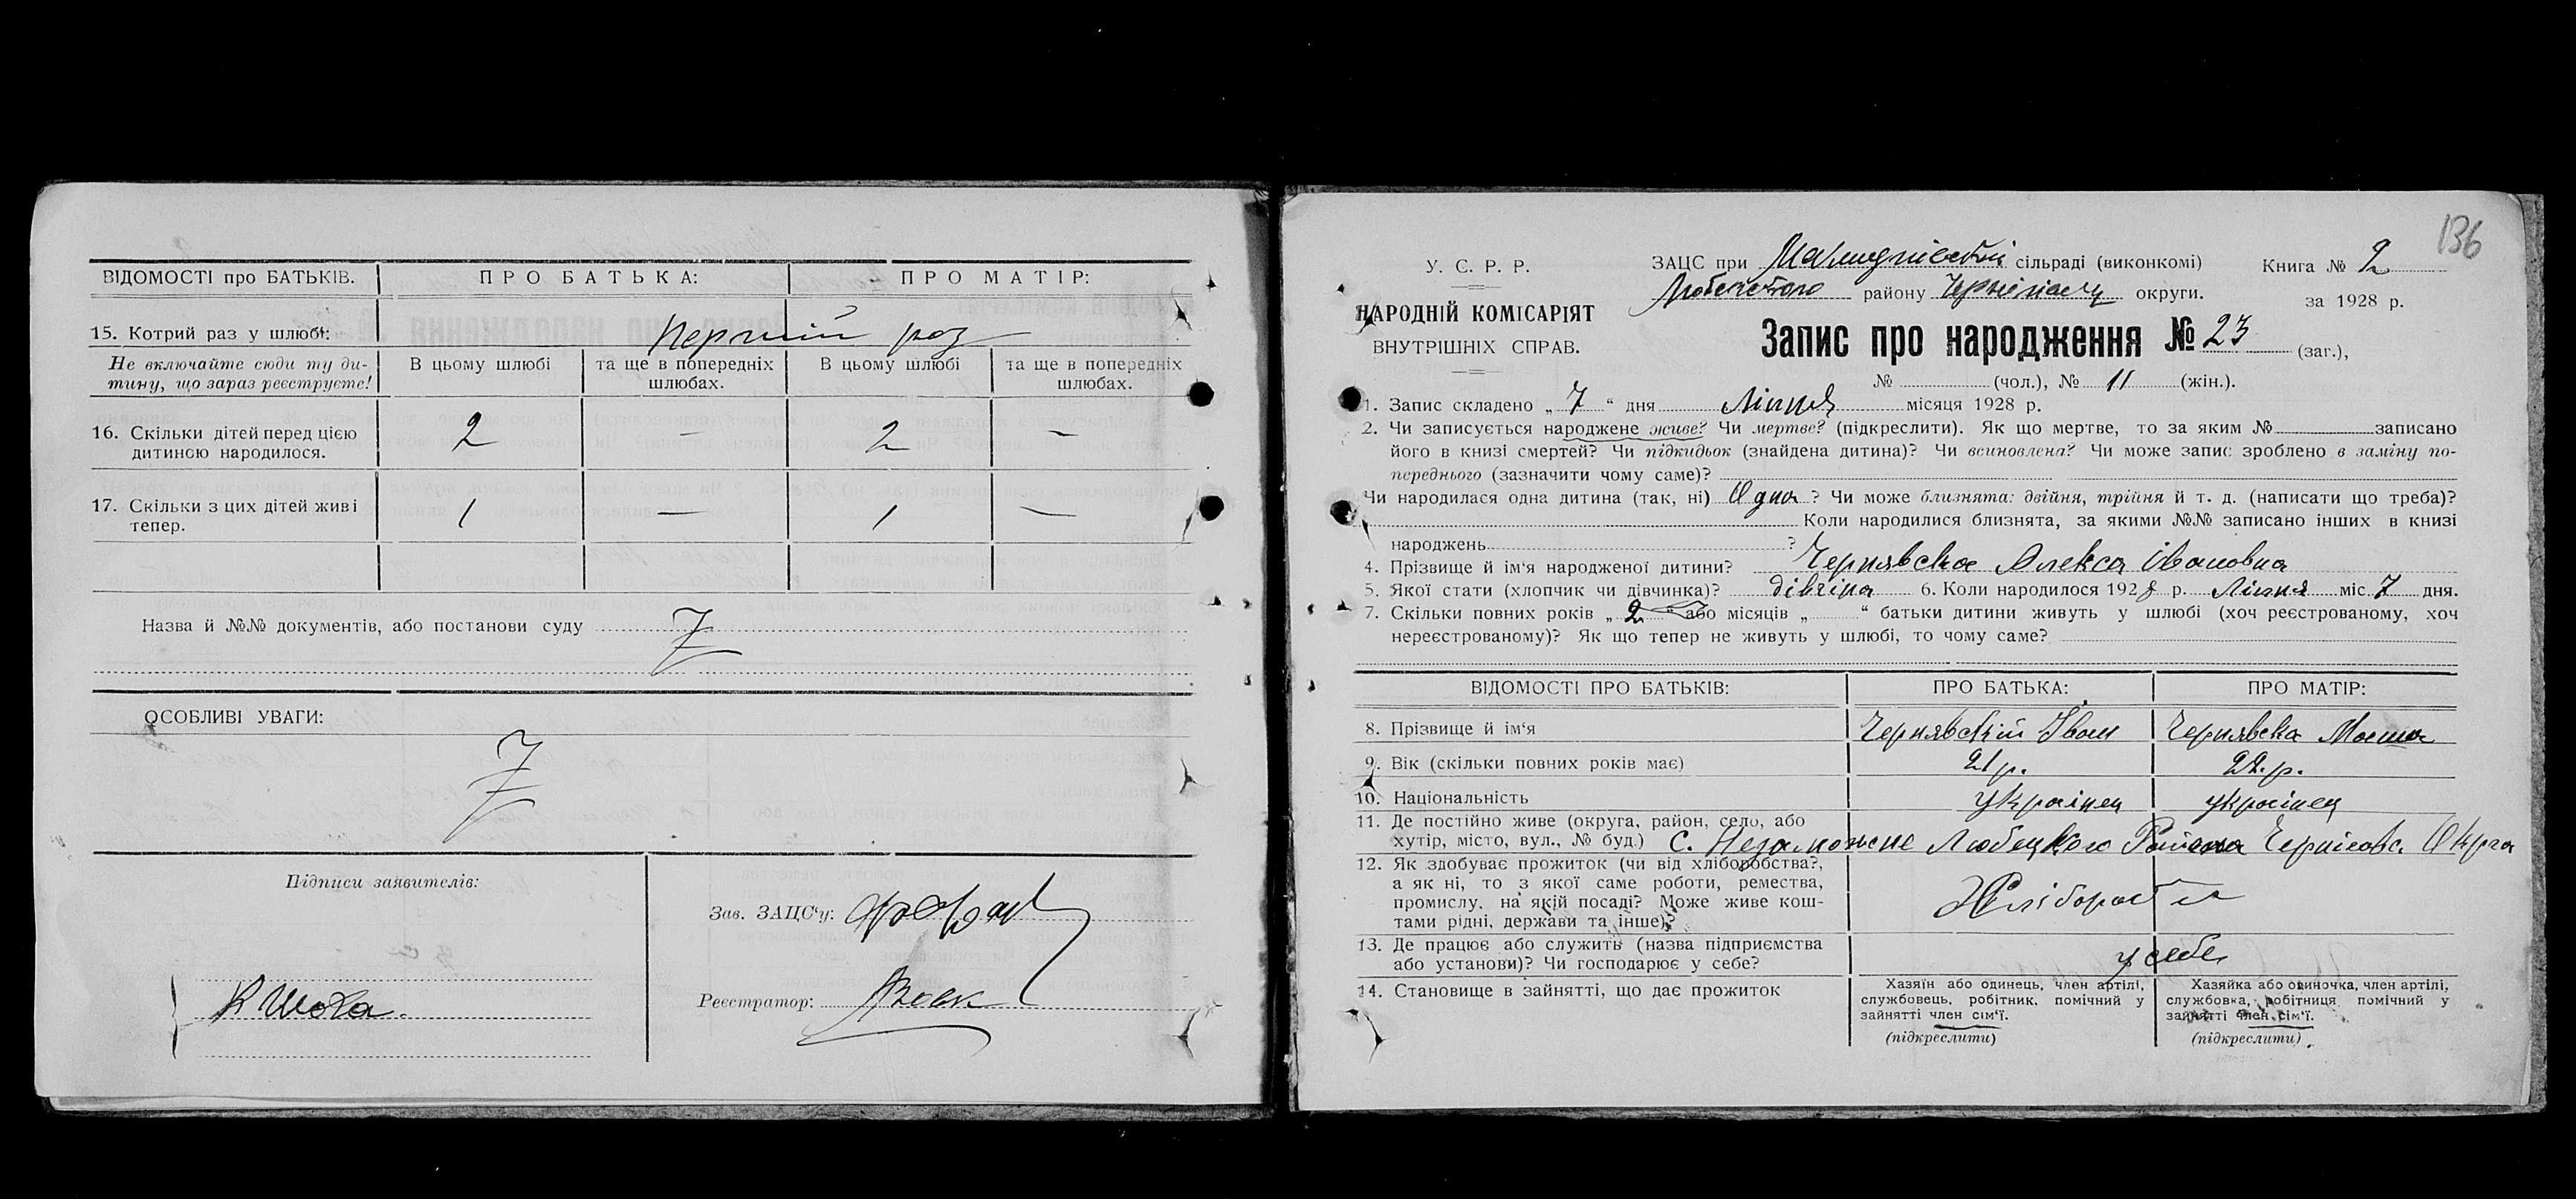 ВІДОМОСТІ про БАТЬКІВ. ПРО БАТЬКА: ПРО МАТІР:
15. Котрий раз у шлюбі: Перший раз
Не включайте сюди ту ди-
тину, що зараз реєструєте!
В цьому шлюбі
та ще в попередніх
шлюбах.
В цьому шлюбі
та ще в попередніх
шлюбах.
16. Скільки дітей перед цією
дитиною народилося.
2 — 2 —
17. Скільки з цих дітей живі
тепер.
1 — 1 —
Назва й №№ документів, або постанови суду
ОСОБЛИВІ УВАГИ:
Підписи заявителів:
Зав. ЗАЦС'у:
Реєстратор:
136
У. С. Р. Р.
НАРОДНІЙ КОМІСАРІЯТ
ВНУТРІШНІХ СПРАВ.
ЗАЦС при сільраді (виконкомі)
району округи.
Книга № 2
за 1928 р.
Запис про народження № 23 (заг.),
№ (чол.), № 11 (жін.).
1. Запис складено „ 7 “ дня Липня місяця 1928 р.
2. Чи записується народжене живе? Чи мертве? (підкреслити). Як що мертве, то за яким № записано
його в книзі смертей? Чи підкидьок (знайдена дитина)? Чи всиновлена? Чи може запис зроблено в заміну по-
переднього (зазначити чому саме)?
Чи народилася одна дитина (так, ні) Одна ? Чи може близнята: двійня, трійня й т. д. (написати що треба)?
Коли народилися близнята, за якими №№ записано інших в книзі
народжень ?
4. Прізвище й ім'я народженої дитини? Чернявска Олекса Івановна
5. Якої стати (хлопчик чи дівчинка)? дівчіна 6. Коли народилося 1928 р. Липня міс. 7 дня.
7. Скільки повних років „ 2 “ або місяців „ “ батьки дитини живуть у шлюбі (хоч реєстрованому, хоч
нереєстрованому)? Як що тепер не живуть у шлюбі, то чому саме?
ВІДОМОСТІ ПРО БАТЬКІВ: ПРО БАТЬКА: ПРО МАТІР:
8. Прізвище й ім'я Чернявский Іван Чернявска
9. Вік (скільки повних років має) 21 р. 22. р.
10. Національність українец українец
11. Де постійно живе (округа, район, село, або
хутір, місто, вул., № буд.) С. Незаможне Любецкого Района Черніговс. Округа
12. Як здобуває прожиток (чи від хліборобства?,
а як ні, то з якої саме роботи, ремества,
промислу, на якій посаді? Може живе кош-
тами рідні, держави та інше)?
13. Де працює або служить (назва підприємства
або установи)? Чи господарює у себе?
у себе
14. Становище в зайнятті, що дає прожиток
Хазяїн або одинець, член артілі,
службовець, робітник, помічний у
зайнятті член сім'ї.
(підкреслити)
Хазяйка або одиночка, член артілі,
службовка, робітниця помічний у
зайнятті член сім'ї.
(підкреслити)